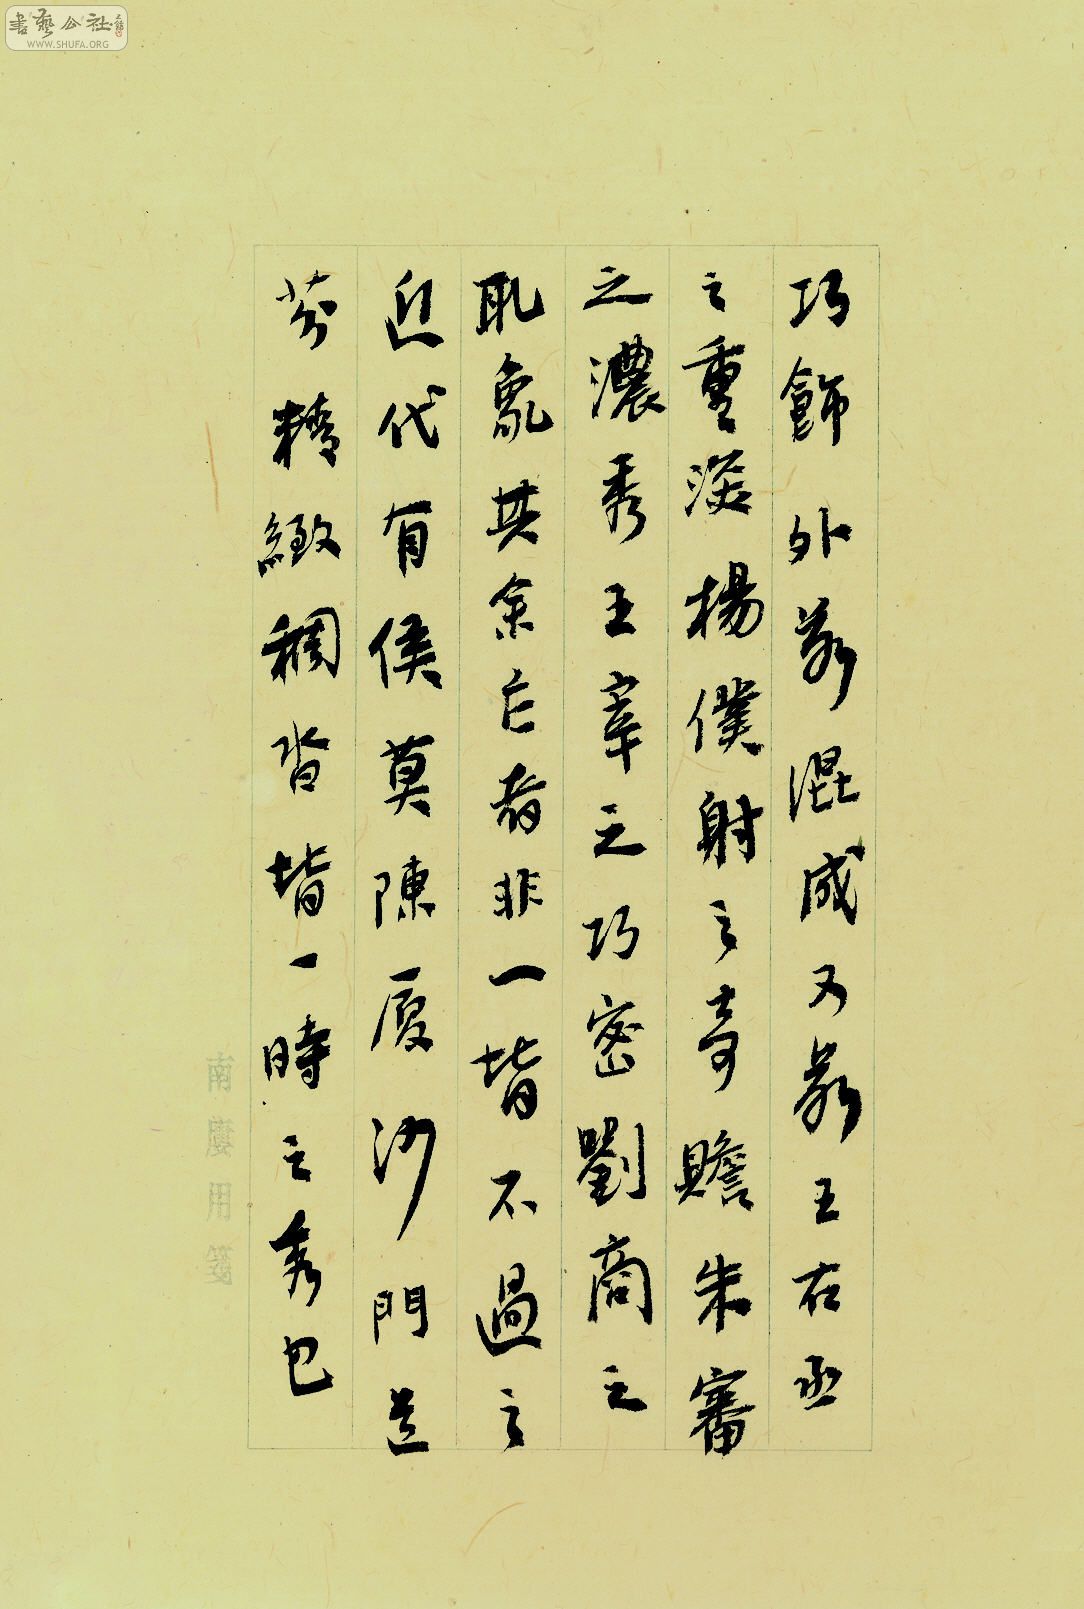 書藝公社
WWW.SHUFA.ORG
巧飾外若混成又若王右丞
之重深楊僕射之奇贍朱審
之濃秀王宰之巧密劉商之
取象其余亡者非一皆不過之
近代有侯莫陳厦沙門道
芬精緻稠沓皆一時之秀也
南廔用箋